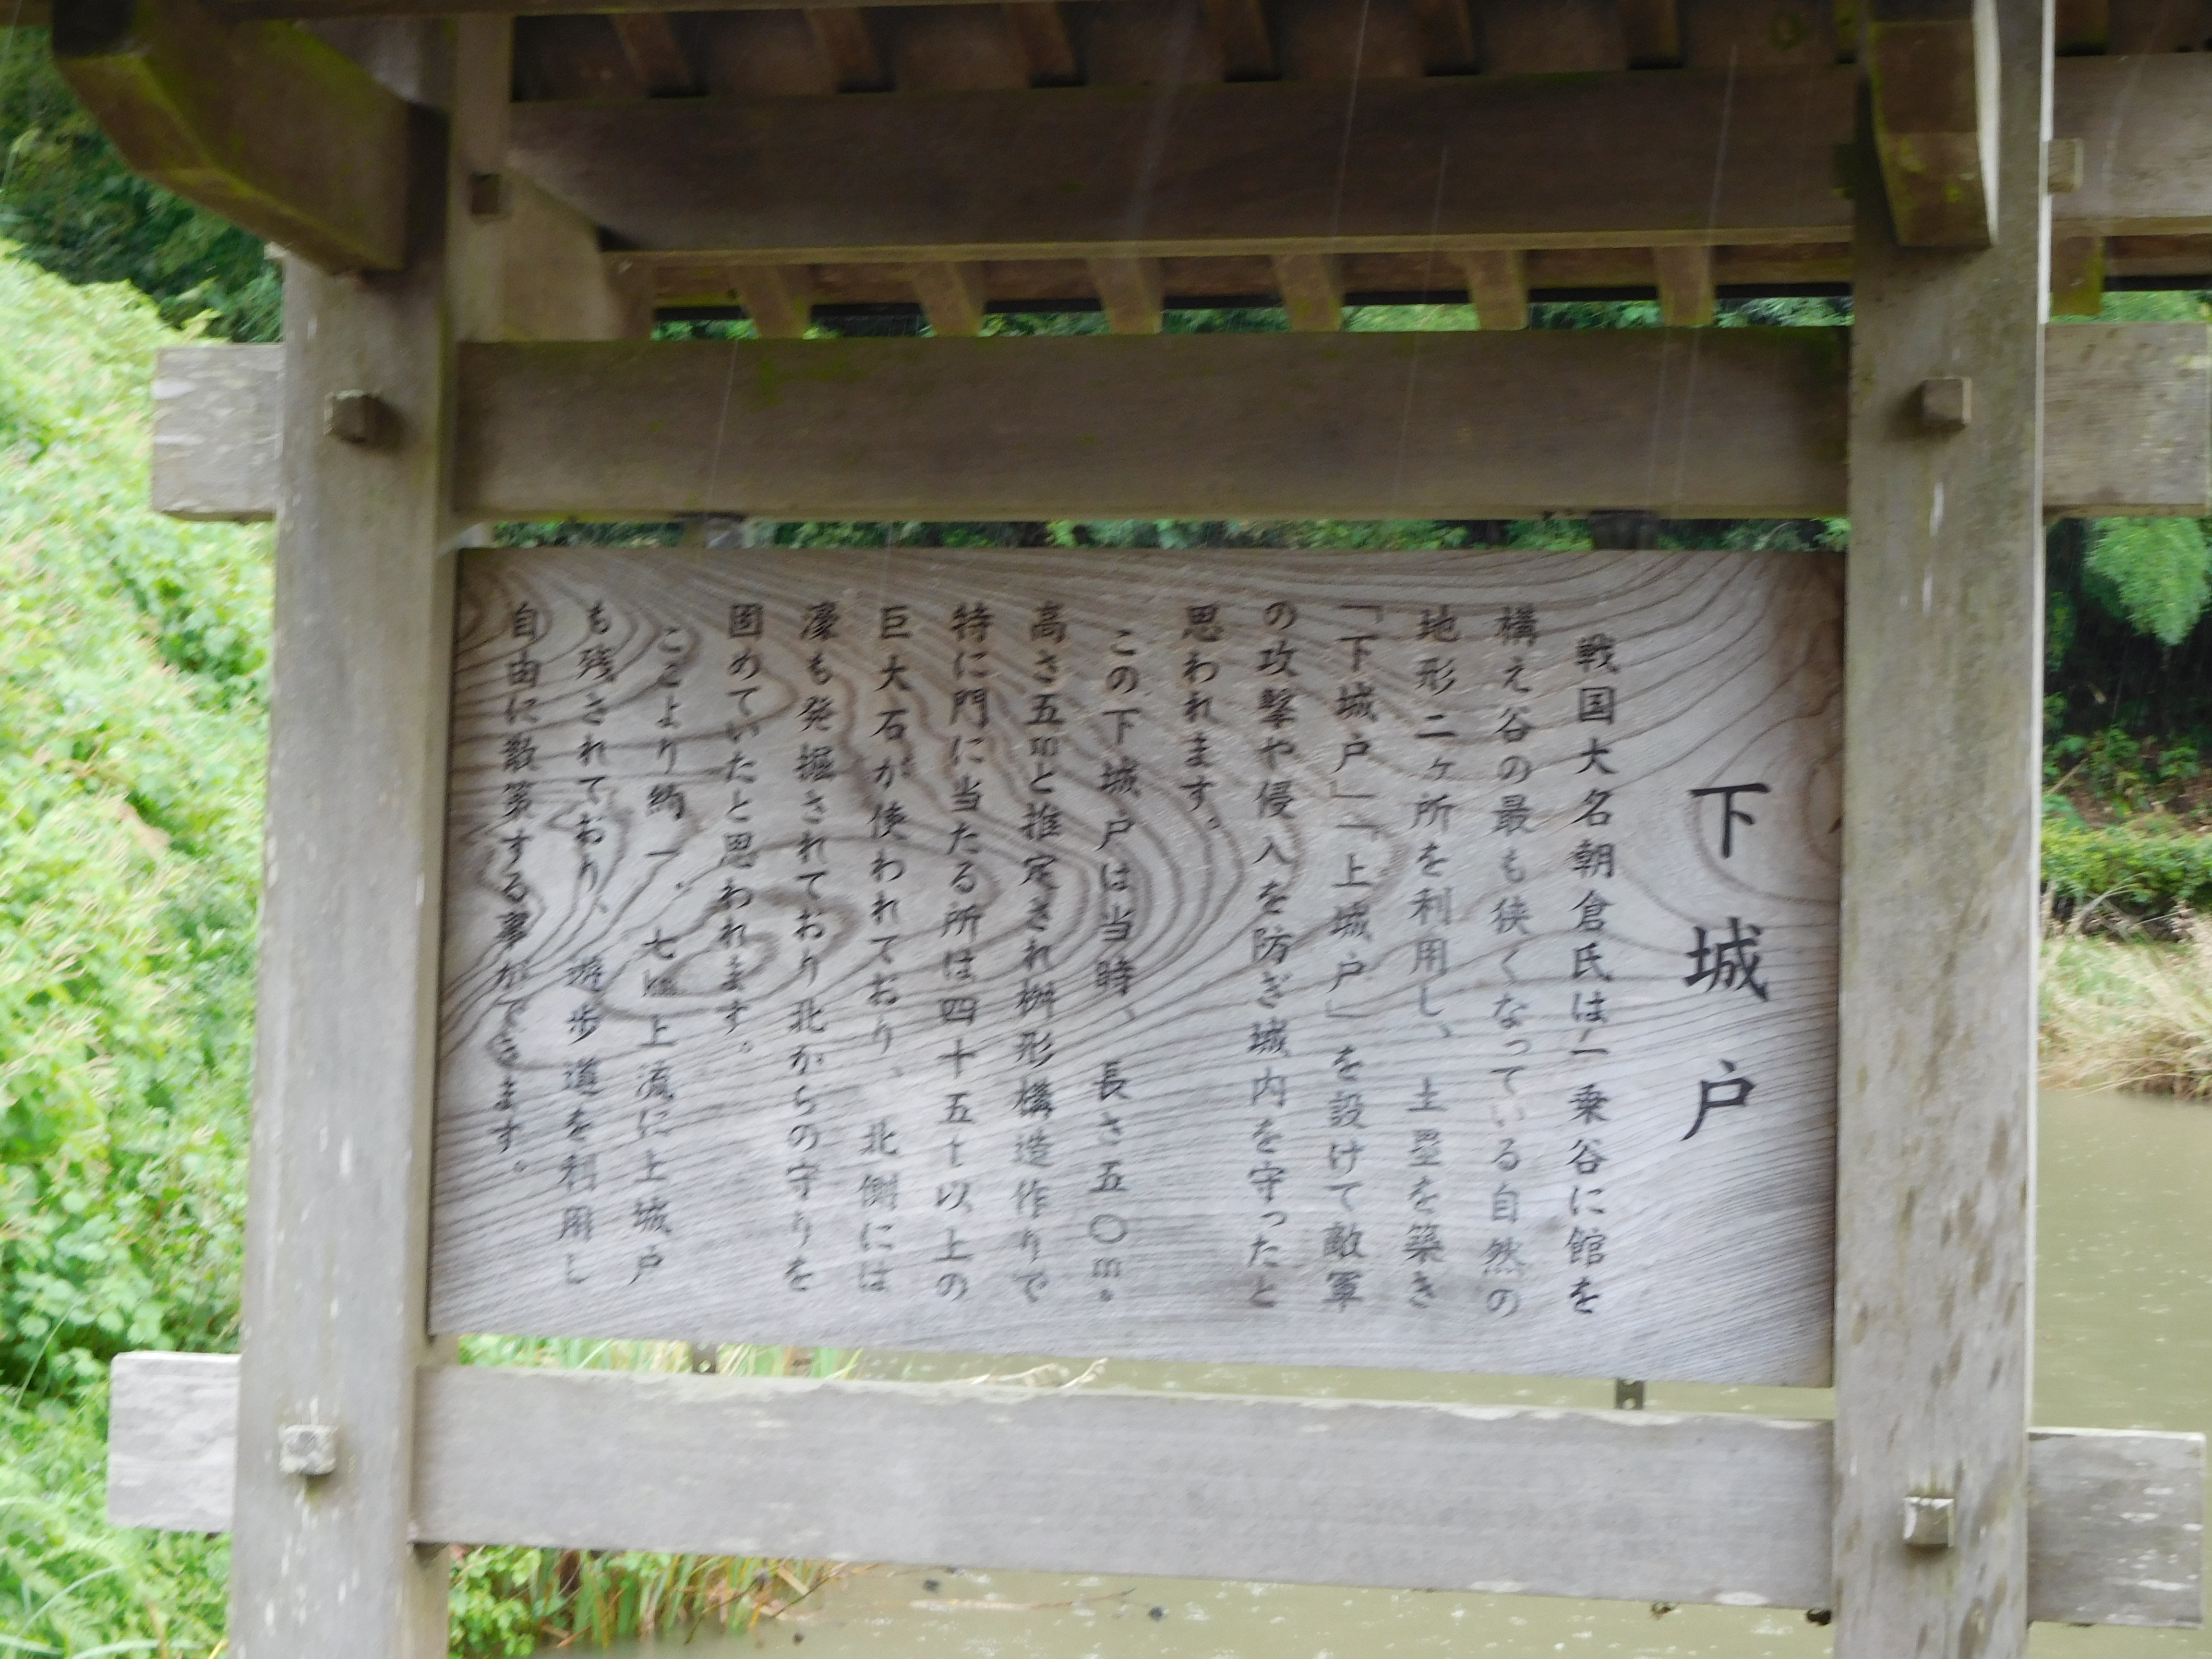 下城戸
戦国大名朝倉氏は一乗谷に館を
構え谷の最も狭くなっている自然の
地形二ヶ所を利用し、土塁を築き
「下城戸」「上城戸」を設けて敵軍
の攻撃や侵入を防ぎ城内を守ったと
思われます。
この下城戸は当時、長さ五〇m。
高さ五mと推定され桝形構造作りで
特に門に当たる所は四十五t以上の
巨大石が使われており、北側には
濠も発掘されており北からの守りを
固めていたと思われます。
ここより約一、七㎞上流に上城戸
も残されており、遊歩道を利用し
自由に散策する事ができます。